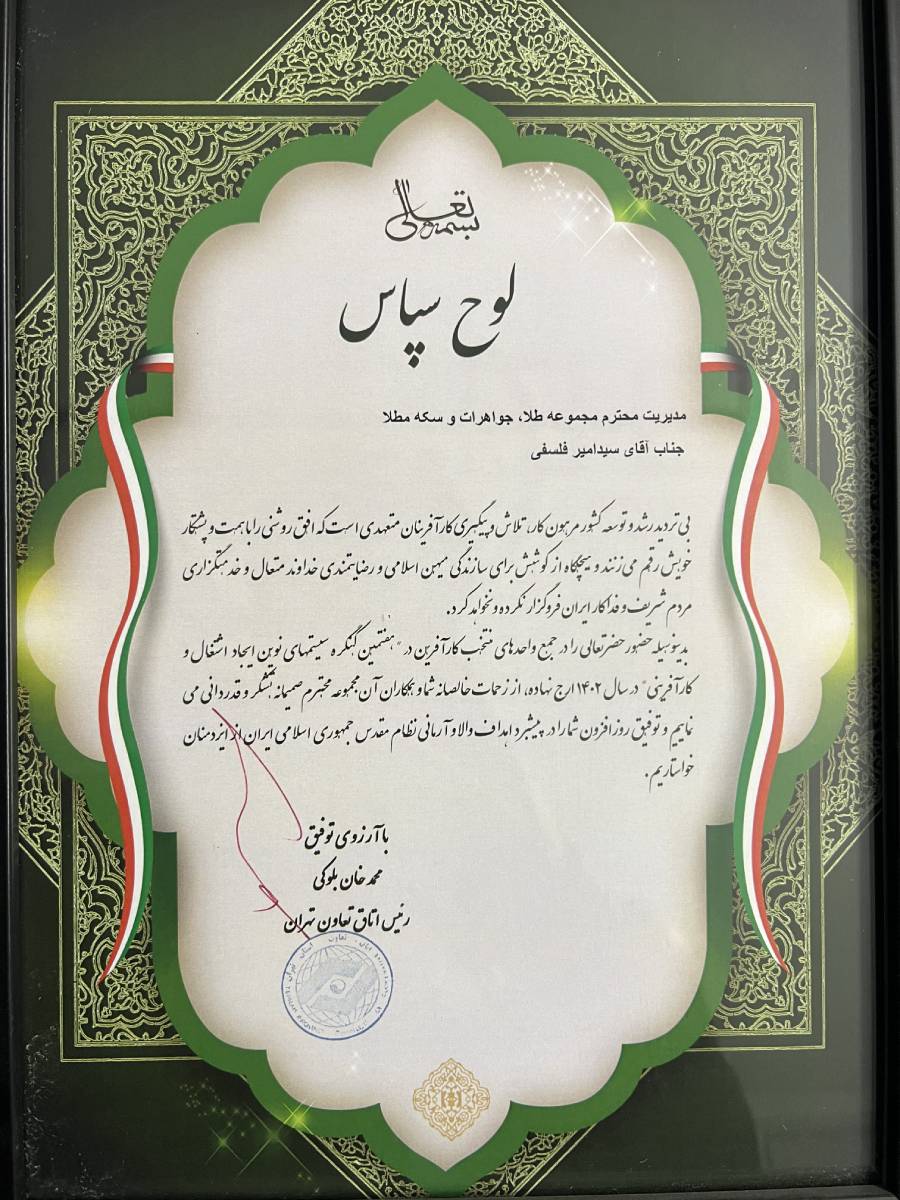 بسمه تعالی
لوح سپاس
مدیریت محترم مجموعه طلا، جواهرات و سکه مطلا
جناب آقای سیدامیر فلسفی
بی تردید رشد و توسعه کشور مرهون کار، تلاش و پیگیری کارآفرینان متعهدی است که افق روشنی را با همت و پشتکار
خویش رقم می زنند و هیچگاه از کوشش برای سازندگی میهن اسلامی و رضایتمندی خداوند متعال و خدمتگزاری
مردم شریف و فداکار ایران فروگزار نکرده و نخواهد کرد.
بدینوسیله حضور حضرتعالی را در جمع واحدهای منتخب کارآفرین در "هفتمین کنگره سیستمهای نوین ایجاد اشتغال و
کارآفرینی" در سال ۱۴۰۲ ارج نهاده، از زحمات خالصانه شما و همکاران آن مجموعه محترم صمیمانه تشکر و قدردانی می
نماییم و توفیق روزافزون شما را در پیشبرد اهداف والا و آرمانی نظام مقدس جمهوری اسلامی ایران از ایزد منان
خواستاریم.
با آرزوی توفیق
محمد خان بلوکی
رئیس اتاق تعاون تهران
اتاق تعاون استان تهران